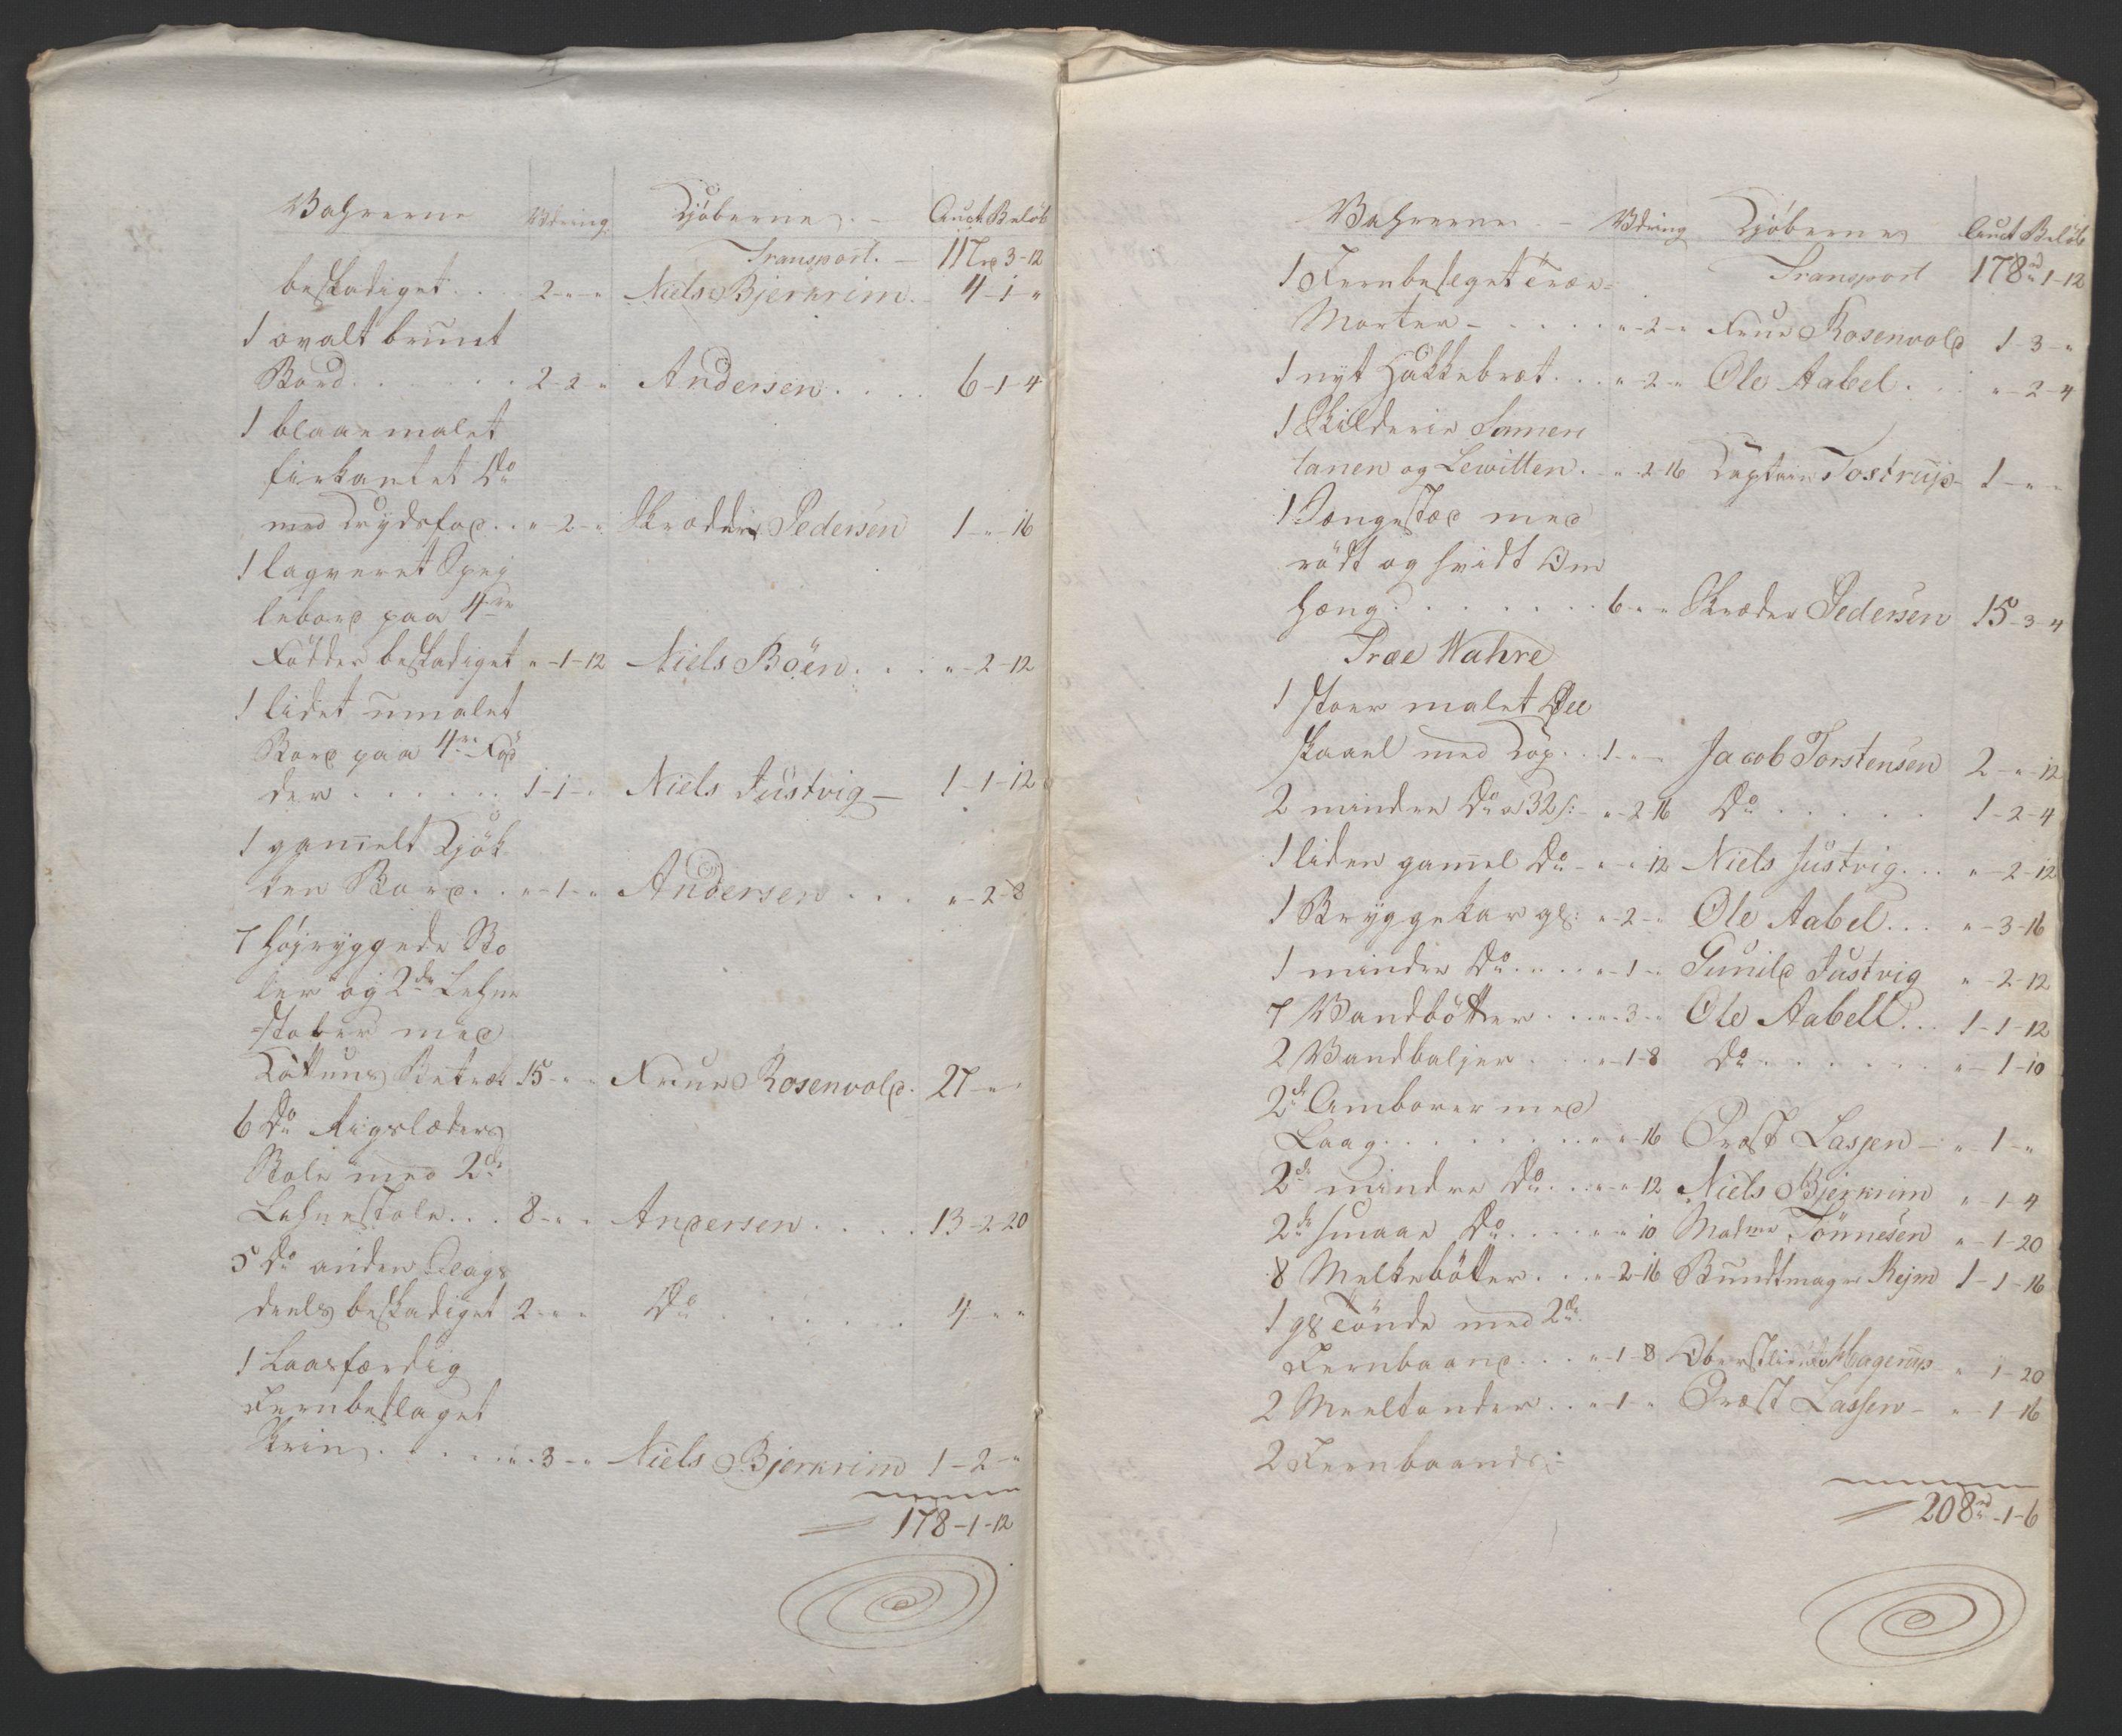 Wahrerne Vdring Kjöberne. - Auct. Belöb
Transport. - 117 rd 3-12
beskadiget . . . 2-"-" Niels Bjerkrim. - 4-1-"
1 ovalt brunt
Bord . . . . . . 2-2-" Andersen . . . . 6-1-4
1 blaae malet
firkantet Do
med Krydsfod . . "-2-" Skrædder Pedersen 1-"-16
1 laqveret Spej
lebord paa 4re
Födder beskadiget "-1-12 Niels Böen . . . "-2-12
1 lidet umalet
Bord paa 4re Fød
der . . . . . . 1-1-" Niels Justvig - 1-1-12
1 gamelt Kjök
ken Bord . . "-1-" Andersen . . . "-2-8
7 höjryggede Sto
ler og 2de Lehne
stoler med
Kattuns Betræk 15-"-" Frue Rosenvold. 27-"-"
6 Do Rigslæders
Stole med 2de
Lehnestole . . . 8-"-" Andersen . . . . 13-2-20
5 Do anden Slags
deels beskadiget 2-"-" Do . . . . . . 4-"-"
1 Laasfærdig
Jernbeslaget
Skrin . . . . . "-3-" Niels Bjerkrim 1-2-"
178-1-12
Wahrerne - Vdring Kjöberne Auct Belöb
1 Jernbeslaget Træe- Transport 178 rd 1-12
Morter - . . . . "-2-" Frue Rosenvold 1-3-"
1 nyt Hakkebræt . . . "-2-" Ole Aabel . . . "-2-4
1 Skilderie Samari
tanen og Lewitten . "-2-16 Captain Tostrup 1-"-"
1 Sængested med
rödt og hvidt Om
hæng . . . . . . . 6-"-" Skræder Pedersen 15-3-4
Træe Wahre
1 stoer malet Øll
skaael med Kop . . 1-"-" Jacob Torstensen 2-"-12
2 mindre Do a 32 s: - "-2-16 Do . . . . . 1-2-4
1 liden gamel Do - "-"-12 Niels Justvig . . . "-2-12
1 Bryggekar gl: "-2-" Ole Aabel . . . "-3-16
1 mindre Do . . . . "-1-" Gunild Justvig "-2-12
7 Wandbötter . . . "-3-" Ole Aabell . . . 1-1-12
2 Wandbaljer . . . "-1-8 Do . . . . . . . "-1-10
2de Ambarer med
Laag . . . . . . . . "-"-16 Præst Lassen - "-1-"
2de mindre Do . . . "-"-12 Niels Bjerkrim "-1-4
2de smaae Do . . . . "-"-10 Madme Tönnesen "-1-20
8 Melkebötter . . . "-2-16 Bundtmager Rejm 1-1-16
1 gl Tönde med 2de
Jernbaand . . . "-1-8 Oberstlieut. Hagerup "-1-20
2 Meeltønder . . "-1-" Præst Lassen - "-1-16
2 Jernbaands:
208 rd -1-6